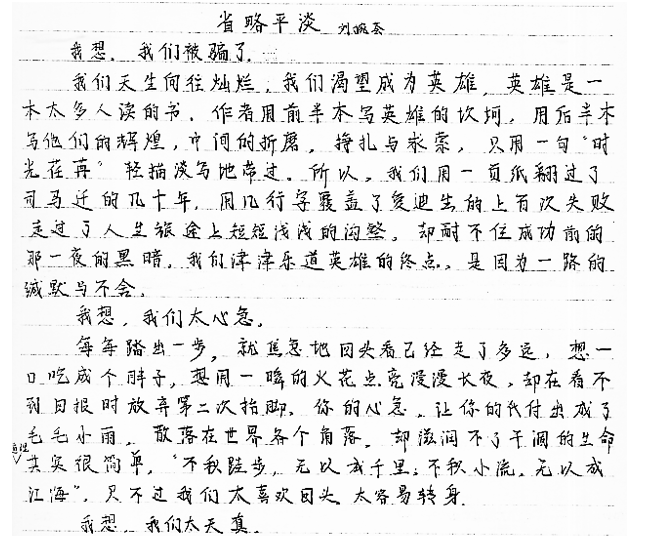 省略平淡 刘婉春
我想，我们被骗了。
我们天生向往灿烂，我们渴望成为英雄，英雄是一
本太多人读的书，作者用前半本写英雄的坎坷，用后半本
写他们的辉煌，中间的折磨，挣扎与求索，只用一句“时
光荏苒”轻描淡写地带过。所以，我们用一页纸翻过了
司马迁的几十年，用几行字覆盖了爱迪生的上百次失败
走过了人生旅途上短短浅浅的沟壑，却耐不住成功前的
那一夜的黑暗，我们津津乐道英雄的终点，是因为一路的
缄默与不舍。
我想，我们太心急。
每每踏出一步，就焦急地回头看已经走了多远，想一
口吃成个胖子，想用一瞬的火花点亮漫漫长夜，却在看不
到回报时放弃第二次抬脚，你的心急，让你的代付出成了
毛毛小雨，散落在世界各个角落，却滋润不了干涸的生命
道理
其实很简单，“不积跬步，无以成千里；不积小流，无以成
江海”，只不过我们太喜欢回头，太容易转身。
我想，我们太天真。